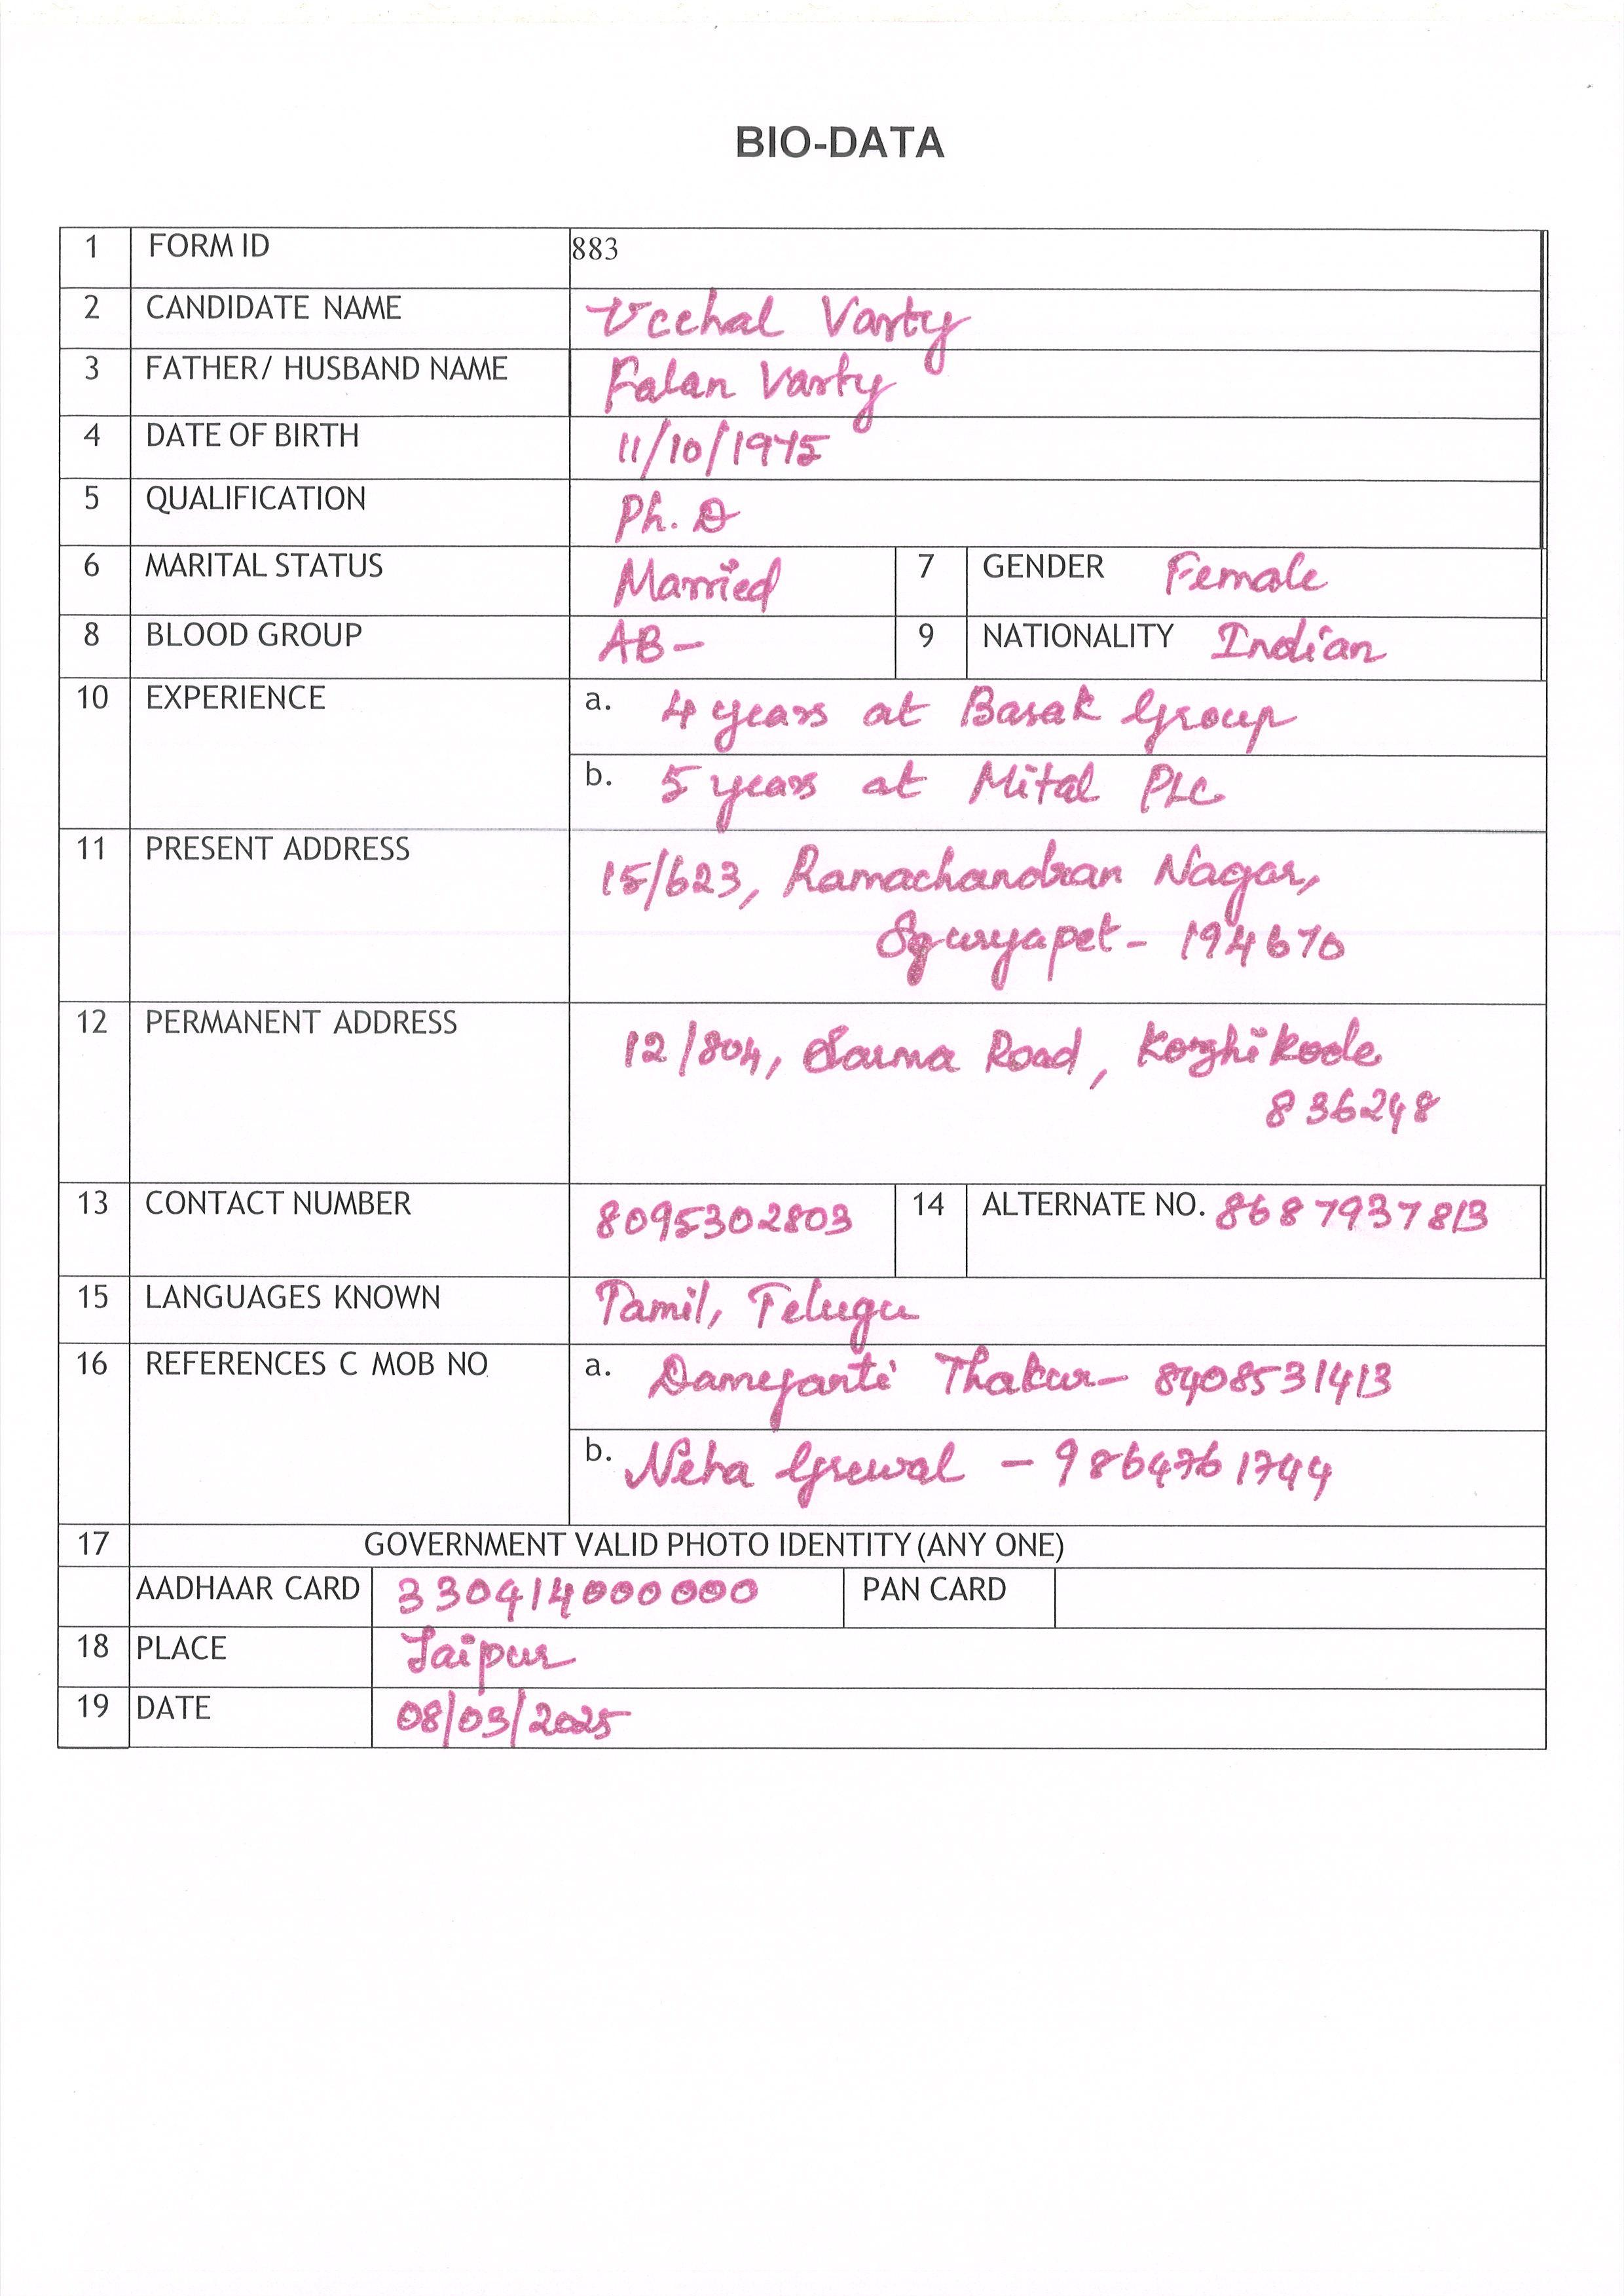 BIO-DATA
1 FORM ID 883
2 CANDIDATE NAME Ucchal Varty
3 FATHER/ HUSBAND NAME Falan Varty
4 DATE OF BIRTH 11/10/1975
5 QUALIFICATION Ph. D
6 MARITAL STATUS Married 7 GENDER Female
8 BLOOD GROUP AB- 9 NATIONALITY Indian
10 EXPERIENCE a. 4 years at Basak Group
b. 5 years at Mital PLC
11 PRESENT ADDRESS 15/623, Ramachandran Nagar,
- 194670
12 PERMANENT ADDRESS 12/804, Sarma Road, Kozhikode
836248
13 CONTACT NUMBER 8095302803 14 ALTERNATE NO. 8687937813
15 LANGUAGES KNOWN Tamil, Telugu
16 REFERENCES C MOB NO a. Dameyanti Thakur- 8408531413
b. Neha Grewal - 9864761744
17 GOVERNMENT VALID PHOTO IDENTITY (ANY ONE)
AADHAAR CARD 330414000000 PAN CARD
18 PLACE Jaipur
19 DATE 08/03/2025